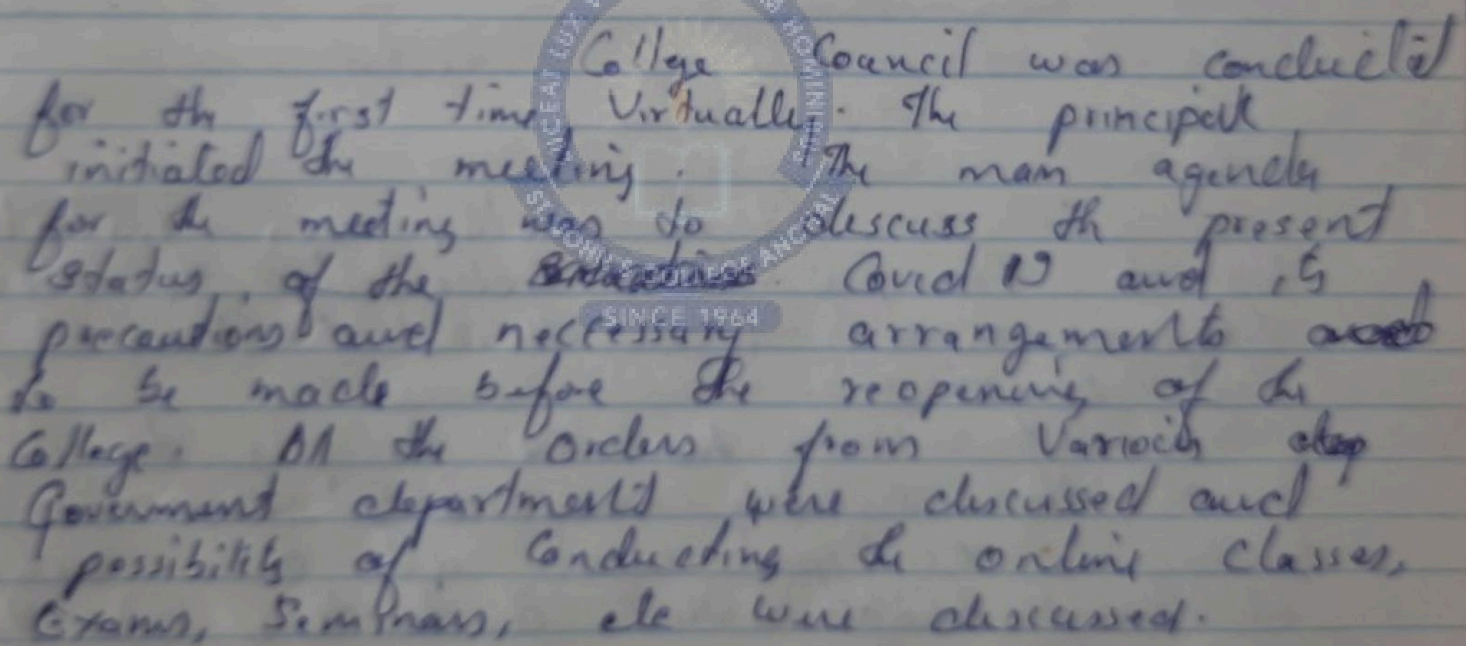 College Council was conducted
for the first time Virtually. The principal
initiated the meeting. The main agenda
for the meeting was to discuss the present
status of the Covid 19 and its
precautions and neccessary arrangements
to be made before the reopening of the
College. All the orders from Various dep
Government department were discussed and
possibility of Conducting the online Classes,
Exams, Seminars, etc were discussed.
SINCE 1964